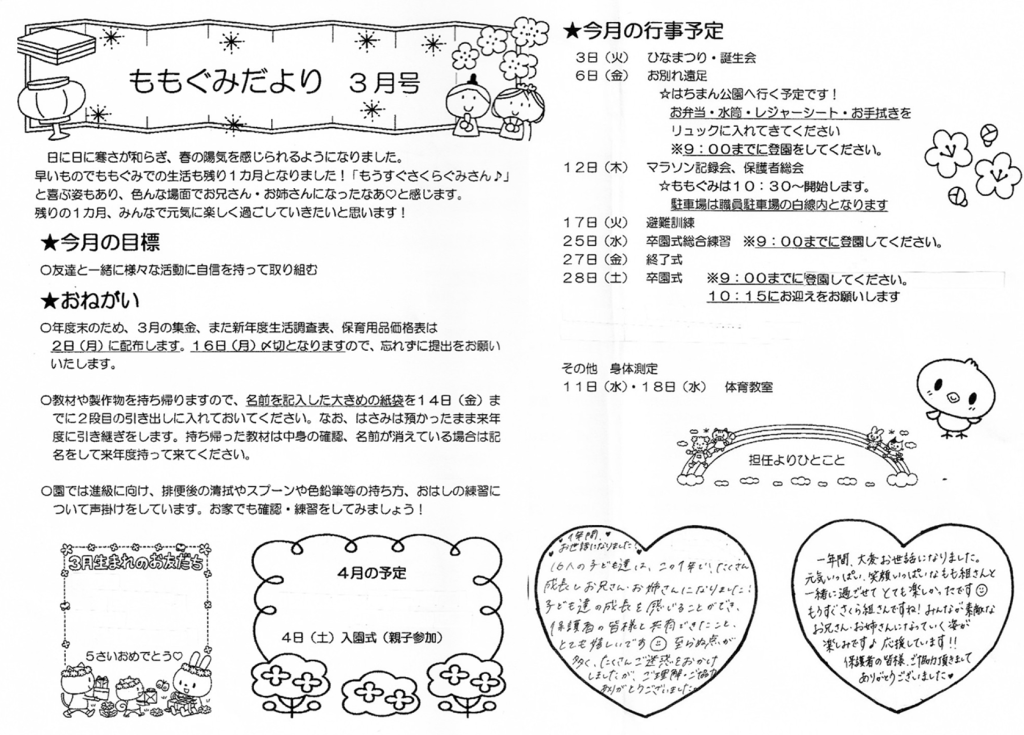 ももぐみだより　３月号
日に日に寒さが和らぎ、春の陽気を感じられるようになりました。
早いものでももぐみでの生活も残り１カ月となりました！「もうすぐさくらぐみさん♪」
と喜ぶ姿もあり、色んな場面でお兄さん・お姉さんになったなあ♡と感じます。
残りの１カ月、みんなで元気に楽しく過ごしていきたいと思います！
★今月の目標
○友達と一緒に様々な活動に自信を持って取り組む
★おねがい
○年度末のため、３月の集金、また新年度生活調査表、保育用品価格表は
２日（月）に配布します。１６日（月）〆切となりますので、忘れずに提出をお願い
いたします。
○教材や製作物を持ち帰りますので、名前を記入した大きめの紙袋を１４日（金）ま
でに２段目の引き出しに入れておいてください。なお、はさみは預かったまま来年
度に引き継ぎをします。持ち帰った教材は中身の確認、名前が消えている場合は記
名をして来年度持って来てください。
○園では進級に向け、排便後の清拭やスプーンや色鉛筆等の持ち方、おはしの練習に
ついて声掛けをしています。お家でも確認・練習をしてみましょう！
３月生まれのお友だち
５さいおめでとう♡
４月の予定
４日（土）入園式（親子参加）
★今月の行事予定
３日（火）　ひなまつり・誕生会
６日（金）　お別れ遠足
☆はちまん公園へ行く予定です！
お弁当・水筒・レジャーシート・お手拭きを
リュックに入れてきてください
※９：００までに登園をしてください。
１２日（木）　マラソン記録会、保護者総会
☆ももぐみは１０：３０～開始します。
駐車場は職員駐車場の白線内となります
１７日（火）　避難訓練
２５日（水）　卒園式総合練習　※９：００までに登園してください。
２７日（金）　終了式
２８日（土）　卒園式　※９：００までに登園してください。
１０：１５にお迎えをお願いします
その他　身体測定
１１日（水）・１８日（水）　体育教室
担任よりひとこと
♥１年間、♥
お世話になりました！
１６人の子ども達は、この１年で、たくさん
成長しお兄さん・お姉さんになりました！
子ども達の成長を感じることができ、
保護者の皆様と共有できたこと、
とても嬉しいです☺ 至らぬ点が
多く、たくさんご迷惑をおかけ
しましたが、ご理解・ご協力
ありがとうございました。
一年間、大変お世話になりました。
元気いっぱい、笑顔いっぱいなもも組さんと
一緒に過ごせて とても楽しかったです☺
もうすぐさくら組さんですね！みんなが素敵な
お兄さん・お姉さんになっていく姿が
楽しみです♪ 応援しています!!
保護者の皆様、ご協力頂きまして
ありがとうございました♥